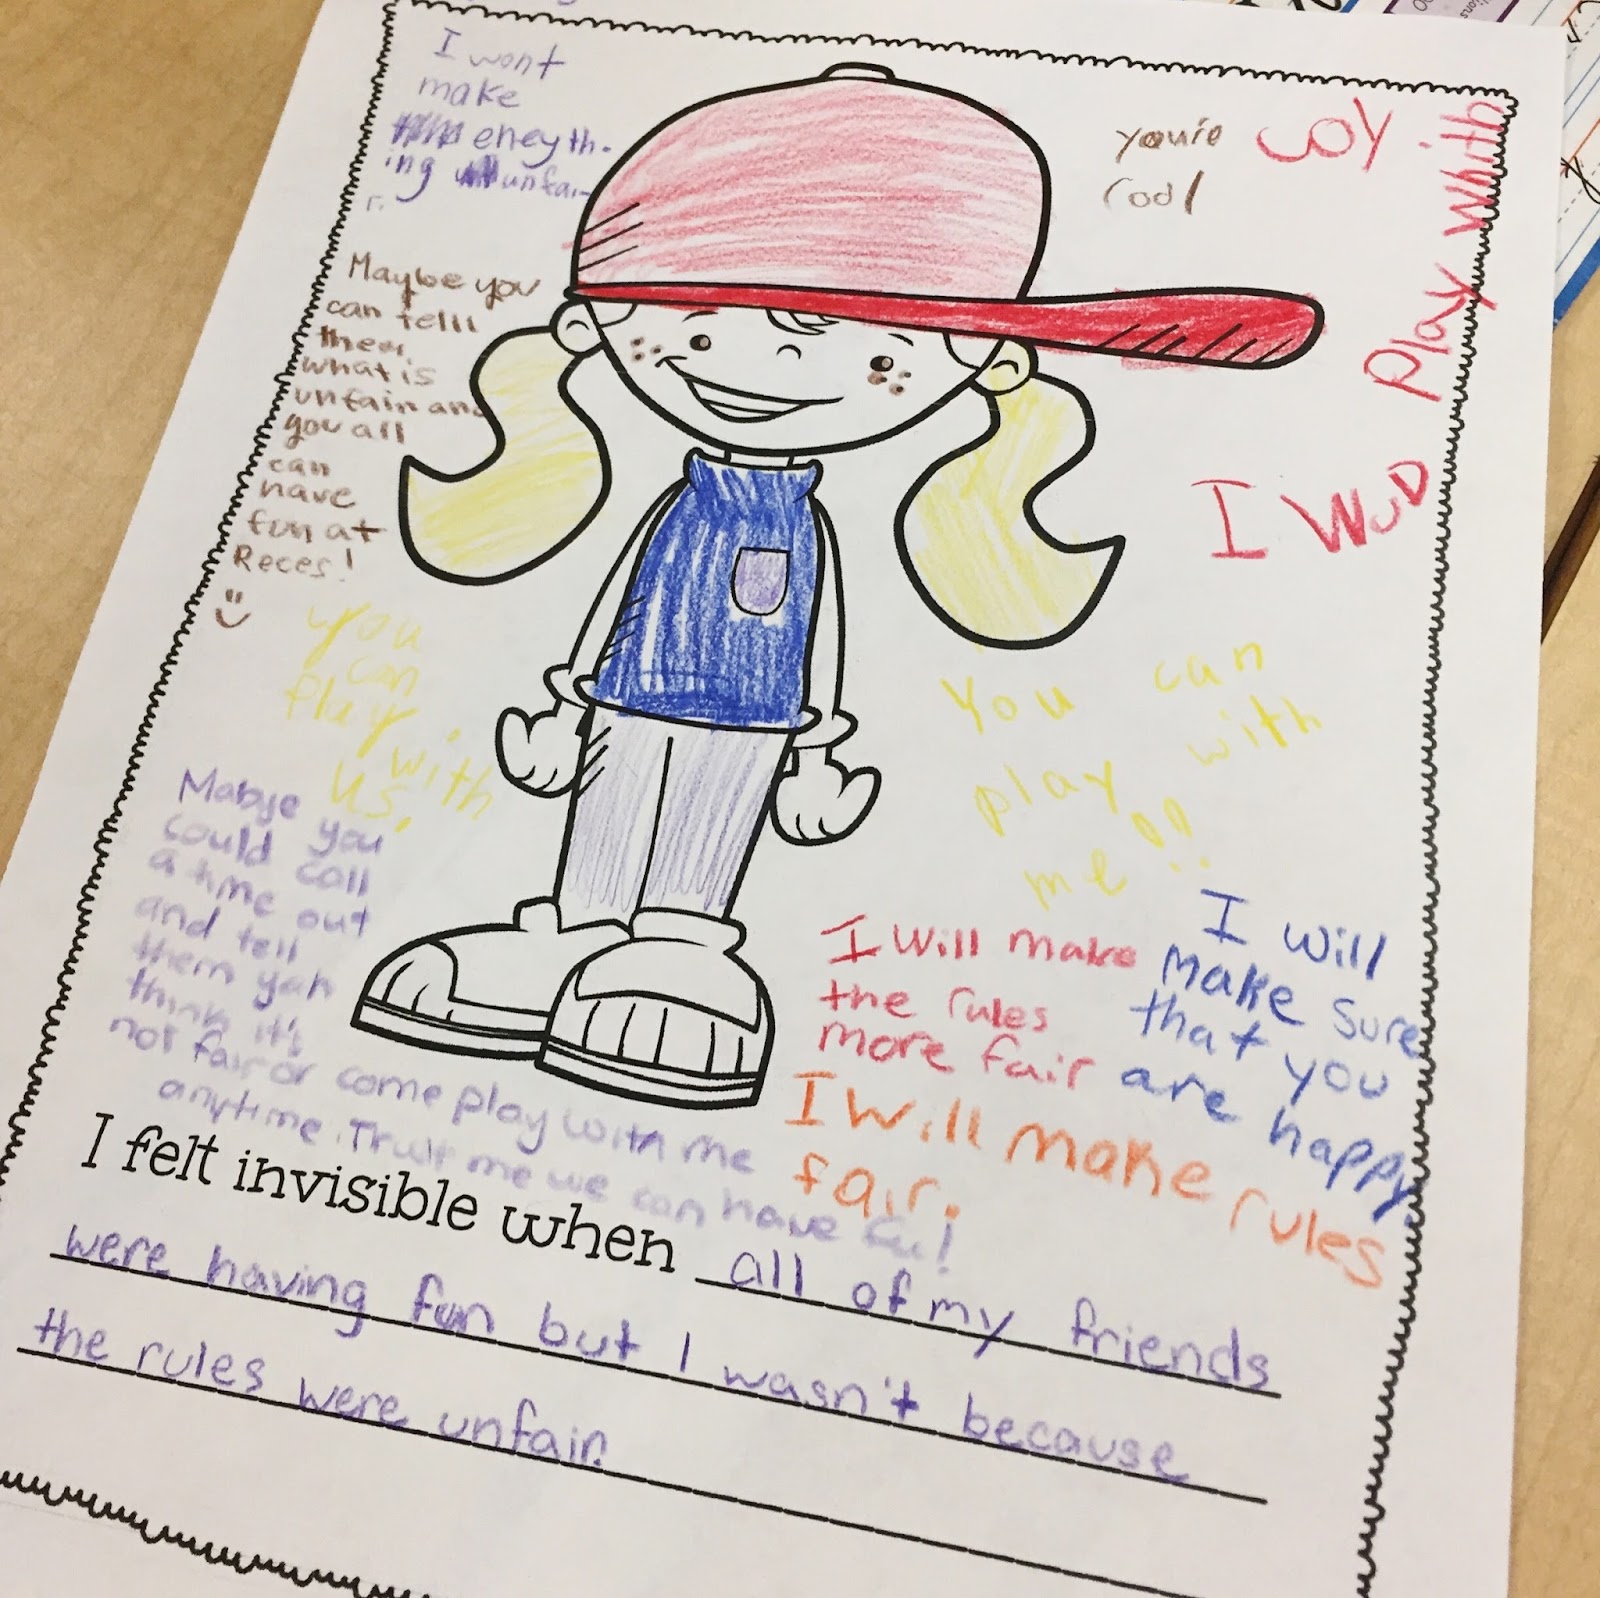 I wont
make
eneyth-
ing unfai-
r.
you're
cool
I WUD Play With
yoy
Maybe you
can telll
them
what is
unfair and
you all
can
have
fun at
Reces!
you
can
Play with
us.
you can
play with
me!!
Mabye you
could call
a time out
and tell
them yah
think it's
not fair or come play with me
anytime. Trust me we can have fu!
I Will make
the rules
more fair
I will
make sure
that you
are happy
I Will make rules
fair.
I felt invisible when all of my friends
were having fun but I wasn't because
the rules were unfair.